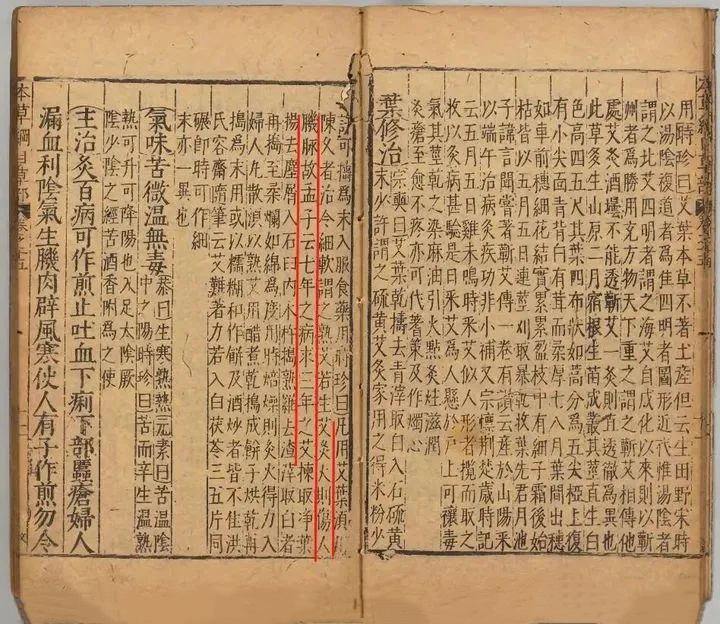 用時珍曰艾葉本草不著土產但云生田野宋時
以湯陰復道者為佳四明者圖形近代惟湯陰者
謂之北艾四明者謂之海艾自成化以來則以蘄
州者為勝用充方物天下重之謂之蘄艾相傳他
處艾灸酒壜不能透蘄艾一灸則直透徹為異也
此草多生山原二月宿根生苗成叢其莖直生白
色高四五尺其葉四布狀如蒿分為五尖椏上復
有小尖面青背白有茸而柔厚七八月葉間出穗
如車前穗細花結實累累盈枝中有細子霜後始
枯皆以五月五日連莖刈取暴乾收葉先君月池
子諱言聞嘗著蘄艾傳一卷有讚云產於山陽采
以端午治病灸疾功非小補又宗懍荊楚歲時記
云五月五日雞未鳴時采艾似人形者攬而取之
收以灸病甚驗是日采艾為人懸於戶上可禳毒
氣其莖乾之染麻油引火點灸炷滋潤
灸瘡至愈不疼亦可代蓍策及作燭心
葉修治
宗奭曰艾葉乾搗去青滓取白入石硫黃
末少許謂之硫黃艾灸家用之得米粉少
許可搗為末入服食藥用時珍曰凡用艾葉須
陳久者治令細軟謂之熟艾若生艾灸火則傷人
肌脈故孟子云七年之病求三年之艾揀取淨葉
揚去塵屑入石臼內木杵搗熟羅去渣滓取白者
再搗至柔爛如綿為度用時焙燥則灸火得力入
婦人丸散須以熟艾用醋煮乾搗成餅子烘乾再
搗為末用或以糯糊和作餅及酒炒者皆不佳洪
氏容齋隨筆云艾難著力若入白茯苓三五片同
碾即時可作細
末亦異也
氣味苦微溫無毒
恭曰生寒熟熱元素曰苦溫陰
中之陽時珍曰苦而辛生溫熟
熱可升可降陽也入足太陰厥
陰少陰之經苦酒香附為之使
主治灸百病可作煎止吐血下痢下部䘌瘡婦人
漏血利陰氣生肌肉辟風寒使人有子作煎勿令
本草綱目草部